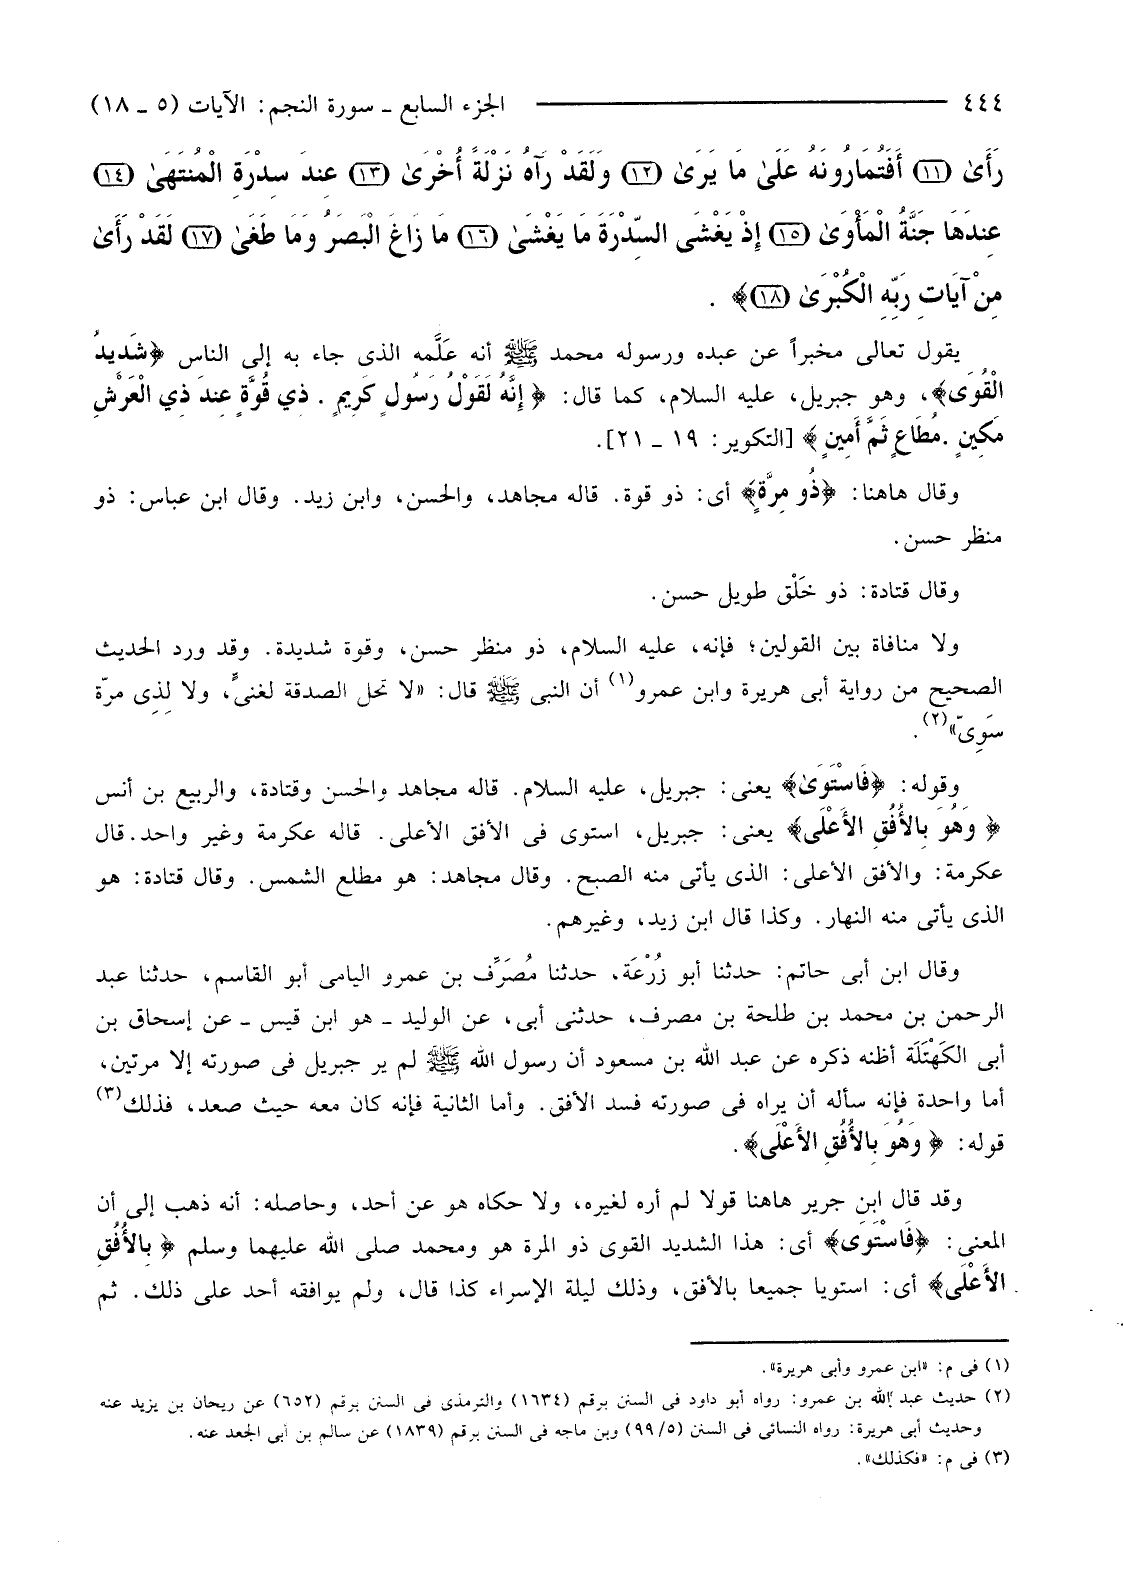 ٤٤٤ الجزء السابع ـ سورة النجم: الآيات (٥ ـ ١٨)
رَأَىٰ (١١) أَفَتُمَارُونَهُ عَلَىٰ مَا يَرَىٰ (١٢) وَلَقَدْ رَآهُ نَزْلَةً أُخْرَىٰ (١٣) عِندَ سِدْرَةِ الْمُنتَهَىٰ (١٤)
عِندَهَا جَنَّةُ الْمَأْوَىٰ (١٥) إِذْ يَغْشَى السِّدْرَةَ مَا يَغْشَىٰ (١٦) مَا زَاغَ الْبَصَرُ وَمَا طَغَىٰ (١٧) لَقَدْ رَأَىٰ
مِنْ آيَاتِ رَبِّهِ الْكُبْرَىٰ (١٨)﴾ .
يقول تعالى مخبراً عن عبده ورسوله محمد ﷺ أنه علَّمه الذى جاء به إلى الناس ﴿شَدِيدُ
الْقُوَىٰ﴾، وهو جبريل، عليه السلام، كما قال: ﴿ إِنَّهُ لَقَوْلُ رَسُولٍ كَرِيمٍ . ذِي قُوَّةٍ عِندَ ذِي الْعَرْشِ
مَكِينٍ .مُطَاعٍ ثَمَّ أَمِينٍ ﴾ [التكوير: ١٩ ـ ٢١].
وقال هاهنا: ﴿ذُو مِرَّةٍ﴾ أى: ذو قوة. قاله مجاهد، والحسن، وابن زيد. وقال ابن عباس: ذو
منظر حسن.
وقال قتادة: ذو خَلْق طويل حسن.
ولا منافاة بين القولين؛ فإنه، عليه السلام، ذو منظر حسن، وقوة شديدة. وقد ورد الحديث
الصحيح من رواية أبى هريرة وابن عمرو(١) أن النبى ﷺ قال: «لا تحل الصدقة لغنىٍّ، ولا لِذِى مرّة
سَوِىّ»(٢).
وقوله: ﴿فَاسْتَوَىٰ﴾ يعنى: جبريل، عليه السلام. قاله مجاهد والحسن وقتادة، والربيع بن أنس
﴿ وَهُوَ بِالأُفُقِ الأَعْلَى﴾ يعنى: جبريل، استوى فى الأفق الأعلى. قاله عكرمة وغير واحد.قال
عكرمة: والأفق الأعلى: الذى يأتى منه الصبح. وقال مجاهد: هو مطلع الشمس. وقال قتادة: هو
الذى يأتى منه النهار. وكذا قال ابن زيد، وغيرهم.
وقال ابن أبى حاتم: حدثنا أبو زُرْعَة، حدثنا مُصَرِّف بن عمرو اليامى أبو القاسم، حدثنا عبد
الرحمن بن محمد بن طلحة بن مصرف، حدثنى أبى، عن الوليد ـ هو ابن قيس ـ عن إسحاق بن
أبى الكَهْتَلَة أظنه ذكره عن عبد الله بن مسعود أن رسول الله ﷺ لم ير جبريل فى صورته إلا مرتين،
أما واحدة فإنه سأله أن يراه فى صورته فسد الأفق. وأما الثانية فإنه كان معه حيث صعد، فذلك(٣)
قوله: ﴿ وَهُوَ بِالأُفُقِ الأَعْلَى﴾.
وقد قال ابن جرير هاهنا قولا لم أره لغيره، ولا حكاه هو عن أحد، وحاصله: أنه ذهب إلى أن
المعنى: ﴿فَاسْتَوَى﴾ أى: هذا الشديد القوى ذو المرة هو ومحمد صلى الله عليهما وسلم ﴿ بِالأُفُقِ
الأَعْلَى﴾ أى: استويا جميعا بالأفق، وذلك ليلة الإسراء كذا قال، ولم يوافقه أحد على ذلك. ثم
(١) فى م: «ابن عمرو وأبى هريرة».
(٢) حديث عبد الله بن عمرو: رواه أبو داود فى السنن برقم (١٦٣٤) والترمذى فى السنن برقم (٦٥٢) عن ريحان بن يزيد عنه
وحديث أبى هريرة: رواه النسائى فى السنن (٩٩/٥) وبن ماجه فى السنن برقم (١٨٣٩) عن سالم بن أبى الجعد عنه.
(٣) فى م: «فكذلك».